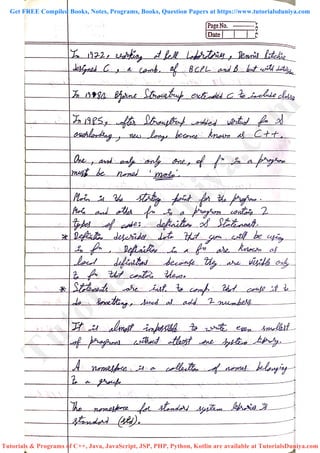 Get FREE Compiled Books, Notes, Programs, Books, Question Papers at https://www.tutorialsduniya.com
Page No.
Date
In 1972, working at Bell Laboratories, Dennis Ritchie
designed C, a comb. of BCPL and B but with
In 1980 Bjarne Stroustrup extended C to include classes
In 1985, after Stroustrup added virtual fn &
overloading, new lang. became known as C++.
One, and only one, of fn in a program
must be named 'main'.
Main is the starting point for the program.
Main and other fn in a program contain 2
types of code: definition & Statement.
* Definition describes data that you will be using
in fn. Definition in a fn are known as
local definitions because they are visible only
to fn that contain them.
* Statements are inst. to comp. that cause it to
do something, such as add 2 numbers.
It is almost impossible to write even smallest
of programs without atleast one system library.
A namespace is a collection of names belonging
to a group.
The namespace for standard system libraries is
standard (std).
Tutorials & Programs of C++, Java, JavaScript, JSP, PHP, Python, Kotlin are available at TutorialsDuniya.com